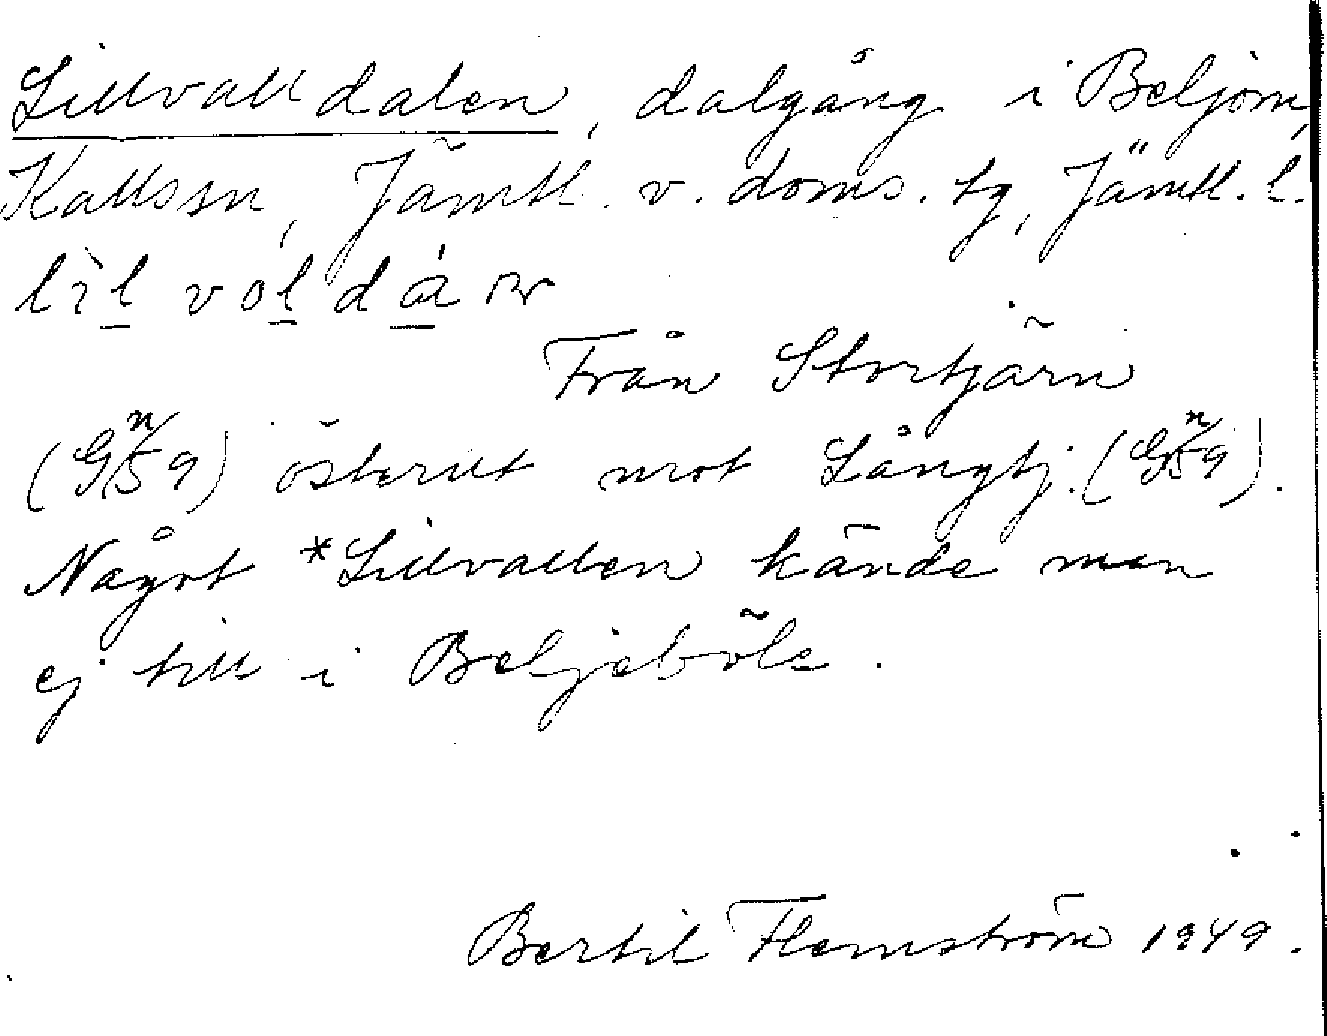 Lillvalldalen, dalgång i Beljom,
Kallssn, Jämtl. v. doms. tg, Jämtl. l.
Från Stortjärn
(Gn59) österut mot Långtj. (Gn59).
Något *Lillvallen kände man
ej till i Beljeböle.
Bertil Flemström 1949.